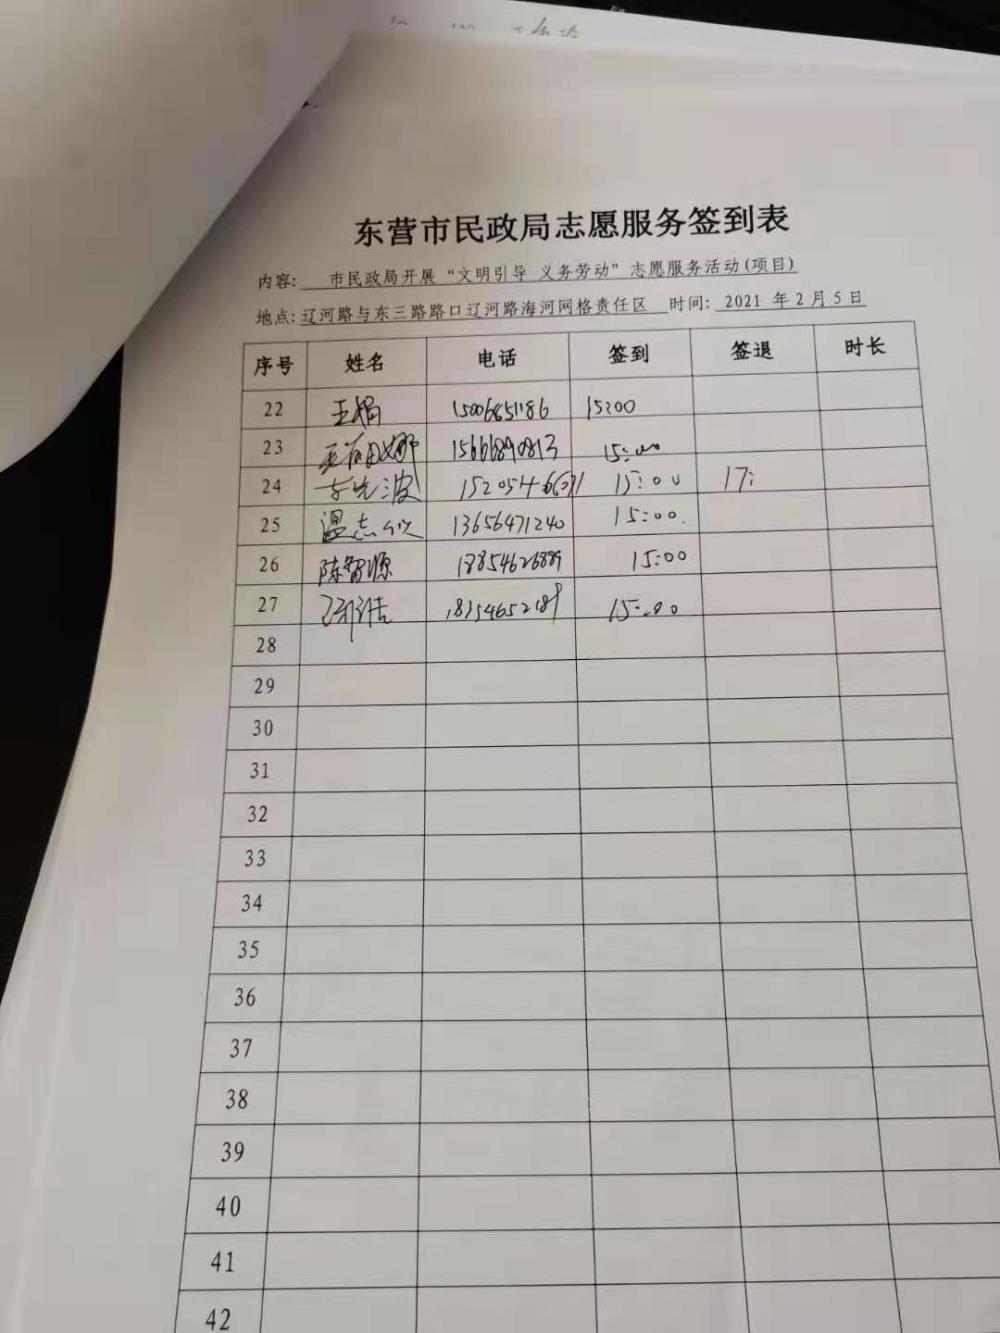 东营市民政局志愿服务签到表
内容: 市民政局开展“文明引导 义务劳动”志愿服务活动(项目)
地点: 辽河路与东三路路口辽河路海河网格责任区 时间: 2021 年 2 月 5 日
序号 姓名 电话 签到 签退 时长
22 王娟 15006851186 15:00
23 15666890813 15:00
24 15:00 17:
25 温志 13656471240 15:00.
26 陈智源 18854626889 15:00
27 18354652189 15:00
28
29
30
31
32
33
34
35
36
37
38
39
40
41
42